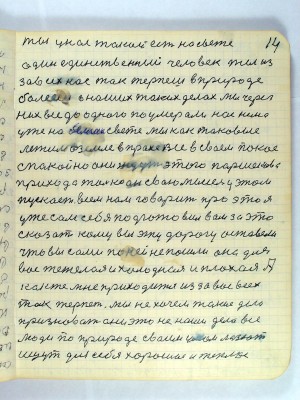 ты у нас такой есть на свете 14
один единственный человек ты из
за всех нас так терпеш в природе
более в наших таких делах мы через
них все до одного поумерали нас нема
уже на белам свете мы как таковые
лежим в земле в прахе не в своем покое
спокойно они ждут этого
прихода только он свою мысль у этом
пускает всем нам говорит про это я
уже сам себя подготовил вам за это
сказать кому вы эту дорогу оставели
что вы сами по ней не пошли она для
вас тежелая и холодная и плохая А
как же мне приходится из за вас всех
так терпет. мы не хочем такое дело
признават они это не наши дела все
люди по природе своим
ищут для себя хорошее и теплое